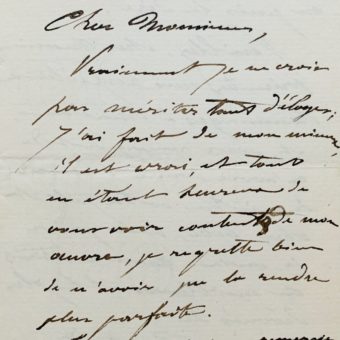 Cher Monsieur,
Vraiment je ne crois
pas mériter tant d'éloges,
J'ai fait de mon mieux,
il est vrai, et tout
en étant heureux de
vous voir content de mon
œuvre, je regrette bien
de n'avoir pu la rendre
plus parfaite.